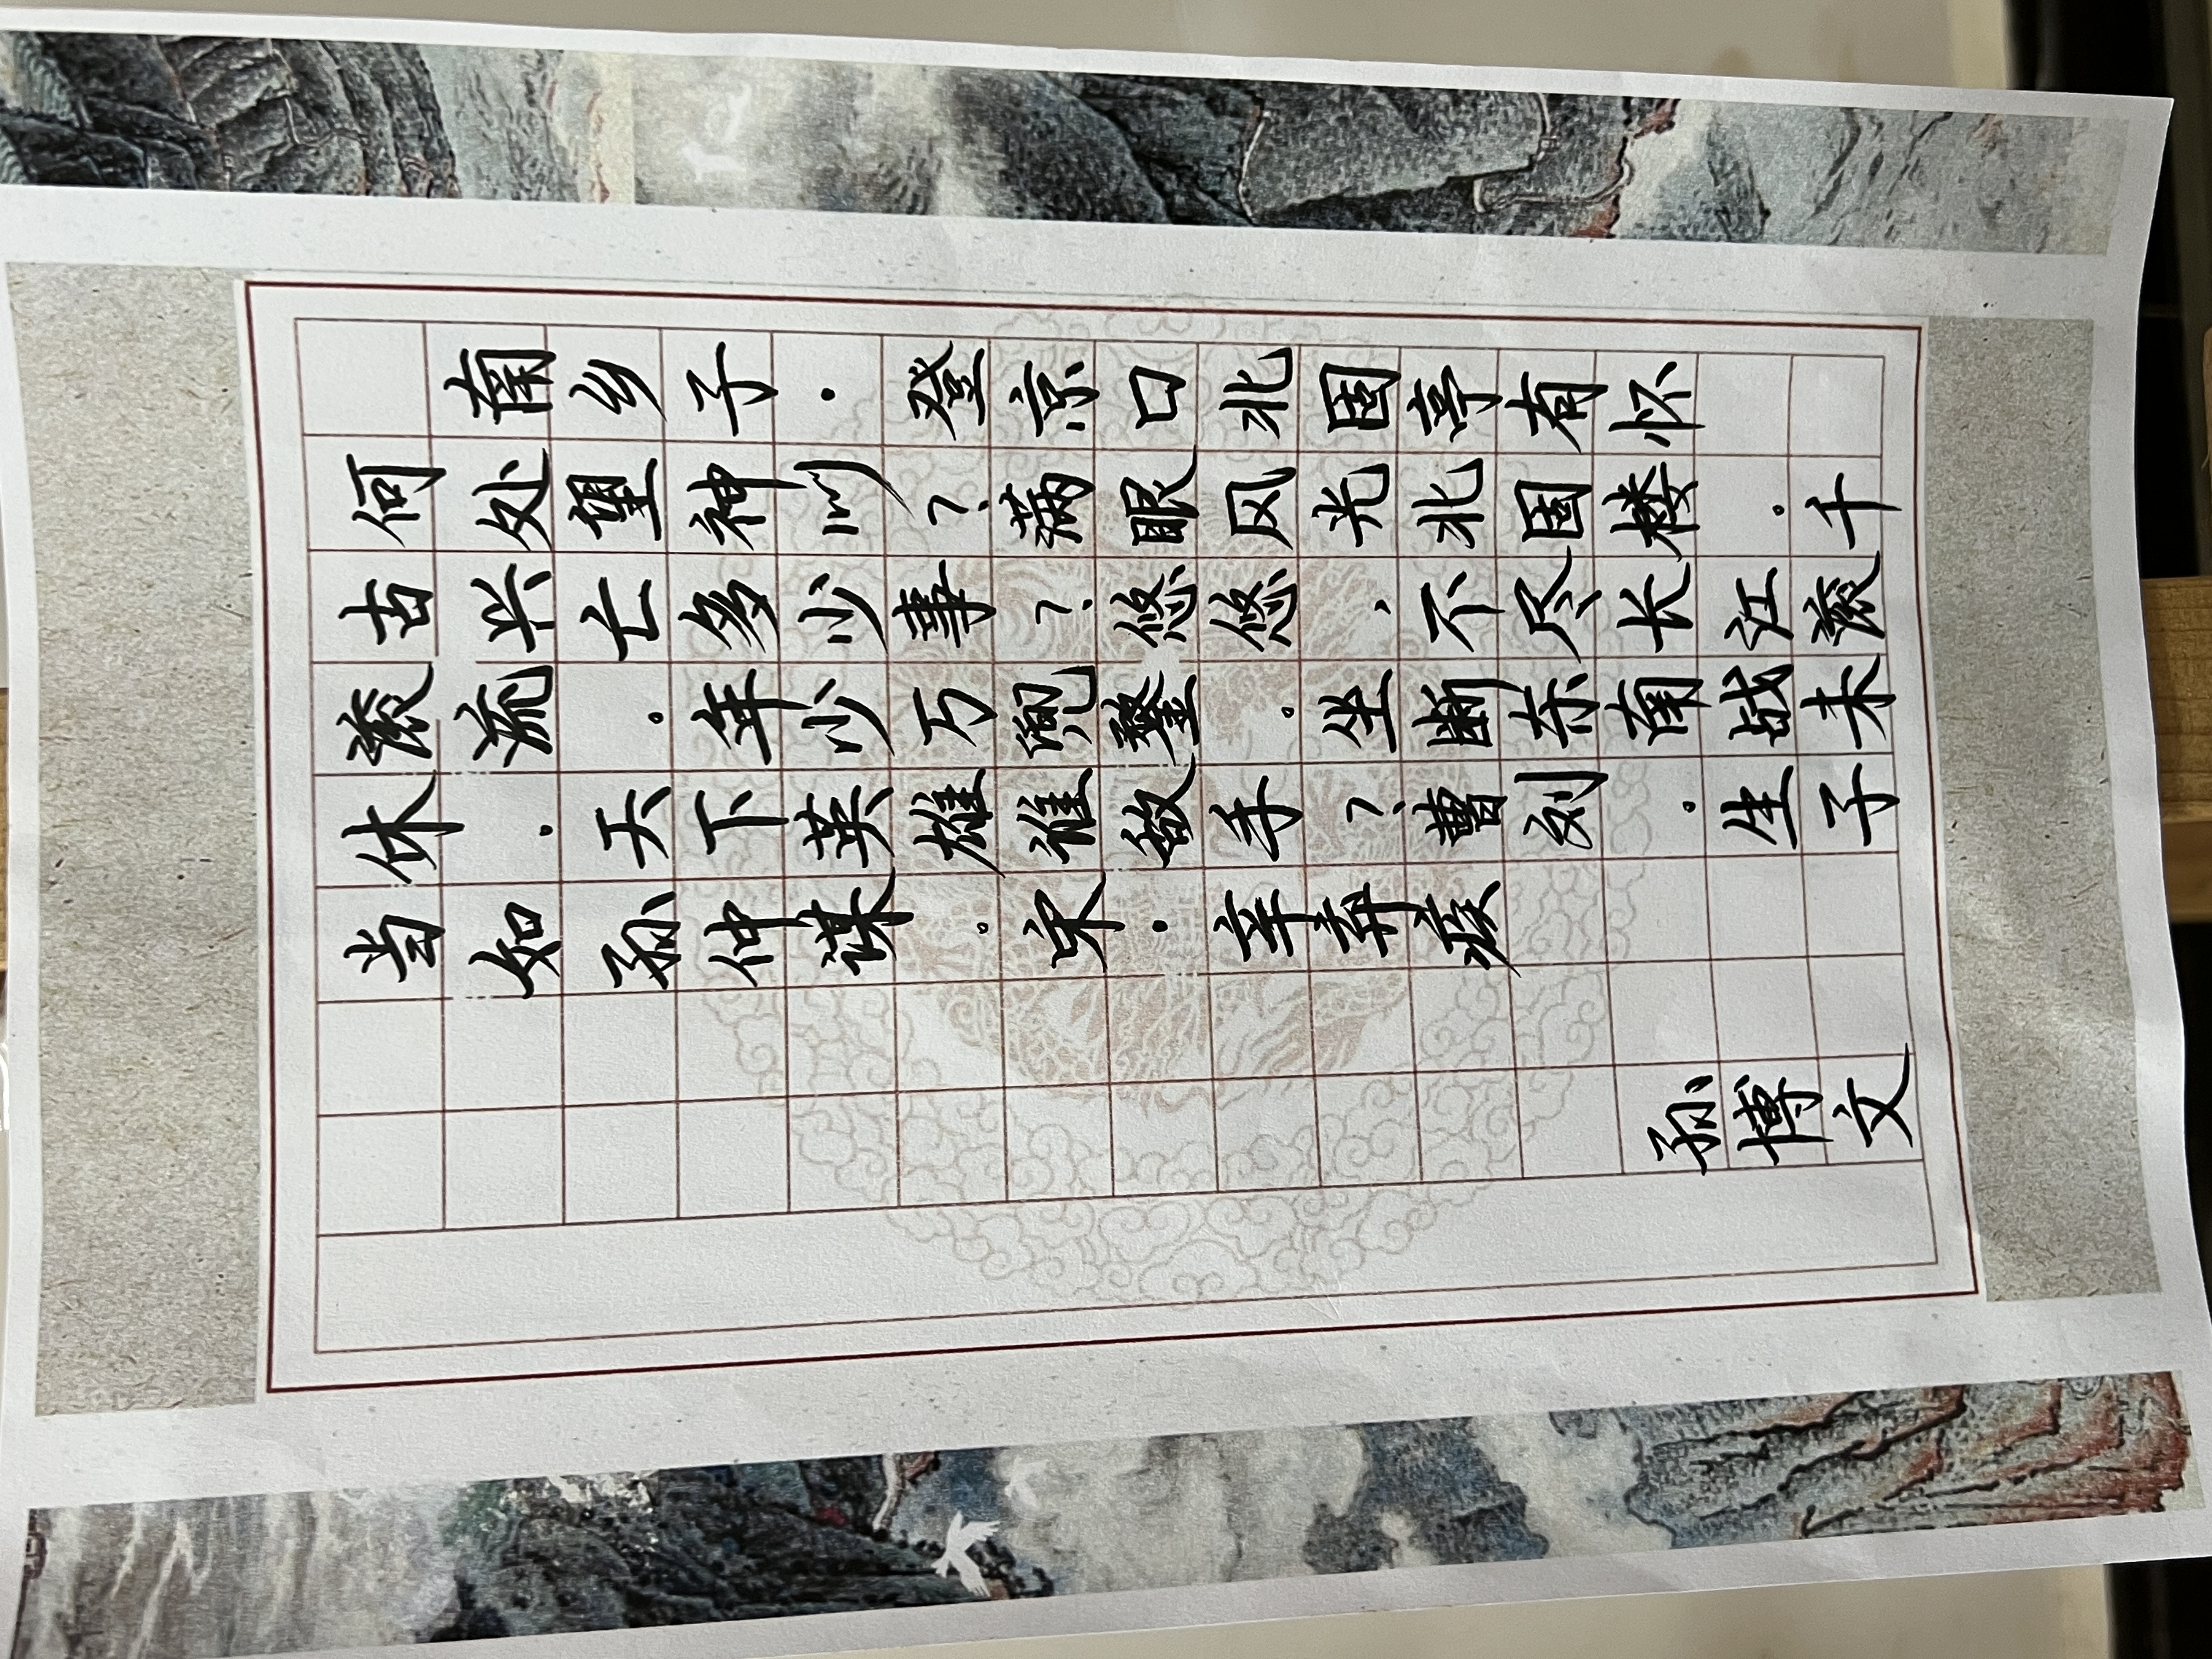 南乡子·登京口北固亭有怀
何处望神州？满眼风光北固楼。千
古兴亡多少事？悠悠，不尽长江滚
滚流。年少万兜鍪。坐断东南战未
休。天下英雄谁敌手？曹刘。生子
当如孙仲谋。宋·辛弃疾
孙博文